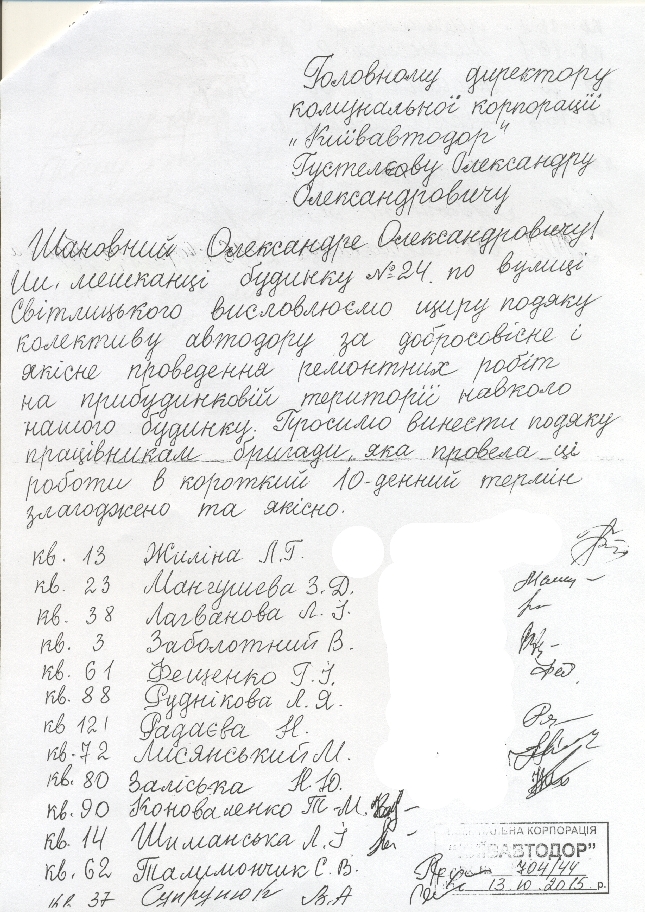 Головному директору
комунальної корпорації
"Київавтодор"
Густелєву Олександру
Олександровичу
Шановний Олександре Олександровичу!
Ми, мешканці будинку №24 по вулиці
Світлицького висловлюємо щиру подяку
колективу автодору за добросовісне і
якісне проведення ремонтних робіт
на прибудинковій території навколо
нашого будинку. Просимо винести подяку
працівникам бригади, яка провела ці
роботи в короткий 10-денний термін
злагоджено та якісно.
кв. 13 Жиліна Л.Г.
кв. 23 Мангушева З.Д.
кв. 38 Лагванова Л.І.
кв. 3 Заболотний В.
кв. 61 Фещенко Г.І.
кв. 88 Руднікова Л.Я.
кв 121 Радаєва Н.
кв. 72 Лисянський М.
кв. 80 Заліська Н.Ю.
кв. 90 Коноваленко Т.М.
кв. 14 Шиманська Л.І
кв. 62 Талимончик С.В.
кв. 37 Супрунюк В.А
КОРПОРАЦІЯ
"КИЇВАВТОДОР"
704/44
13.10.2015 р.